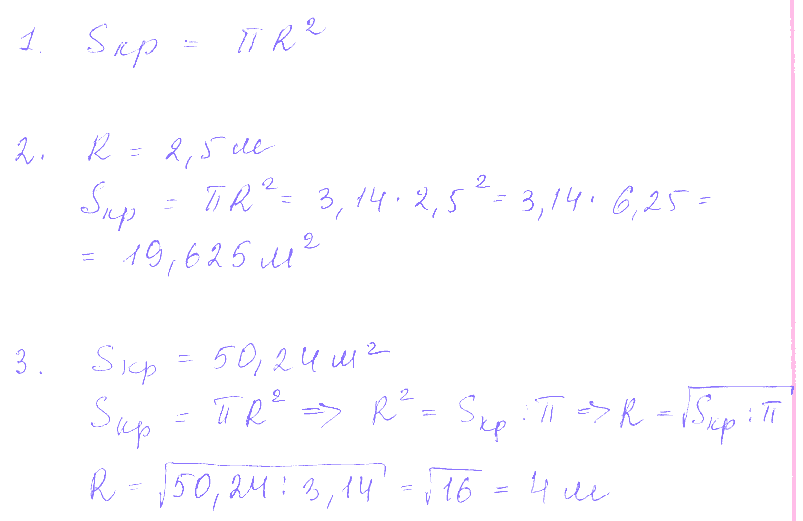 1. Sкр = πR²
2. R = 2,5 м
Sкр = πR² = 3,14 · 2,5² = 3,14 · 6,25 =
= 19,625 м²
3. Sкр = 50,24 м²
Sкр = πR² => R² = Sкр : π => R = √(Sкр : π)
R = √(50,24 : 3,14) = √16 = 4 м